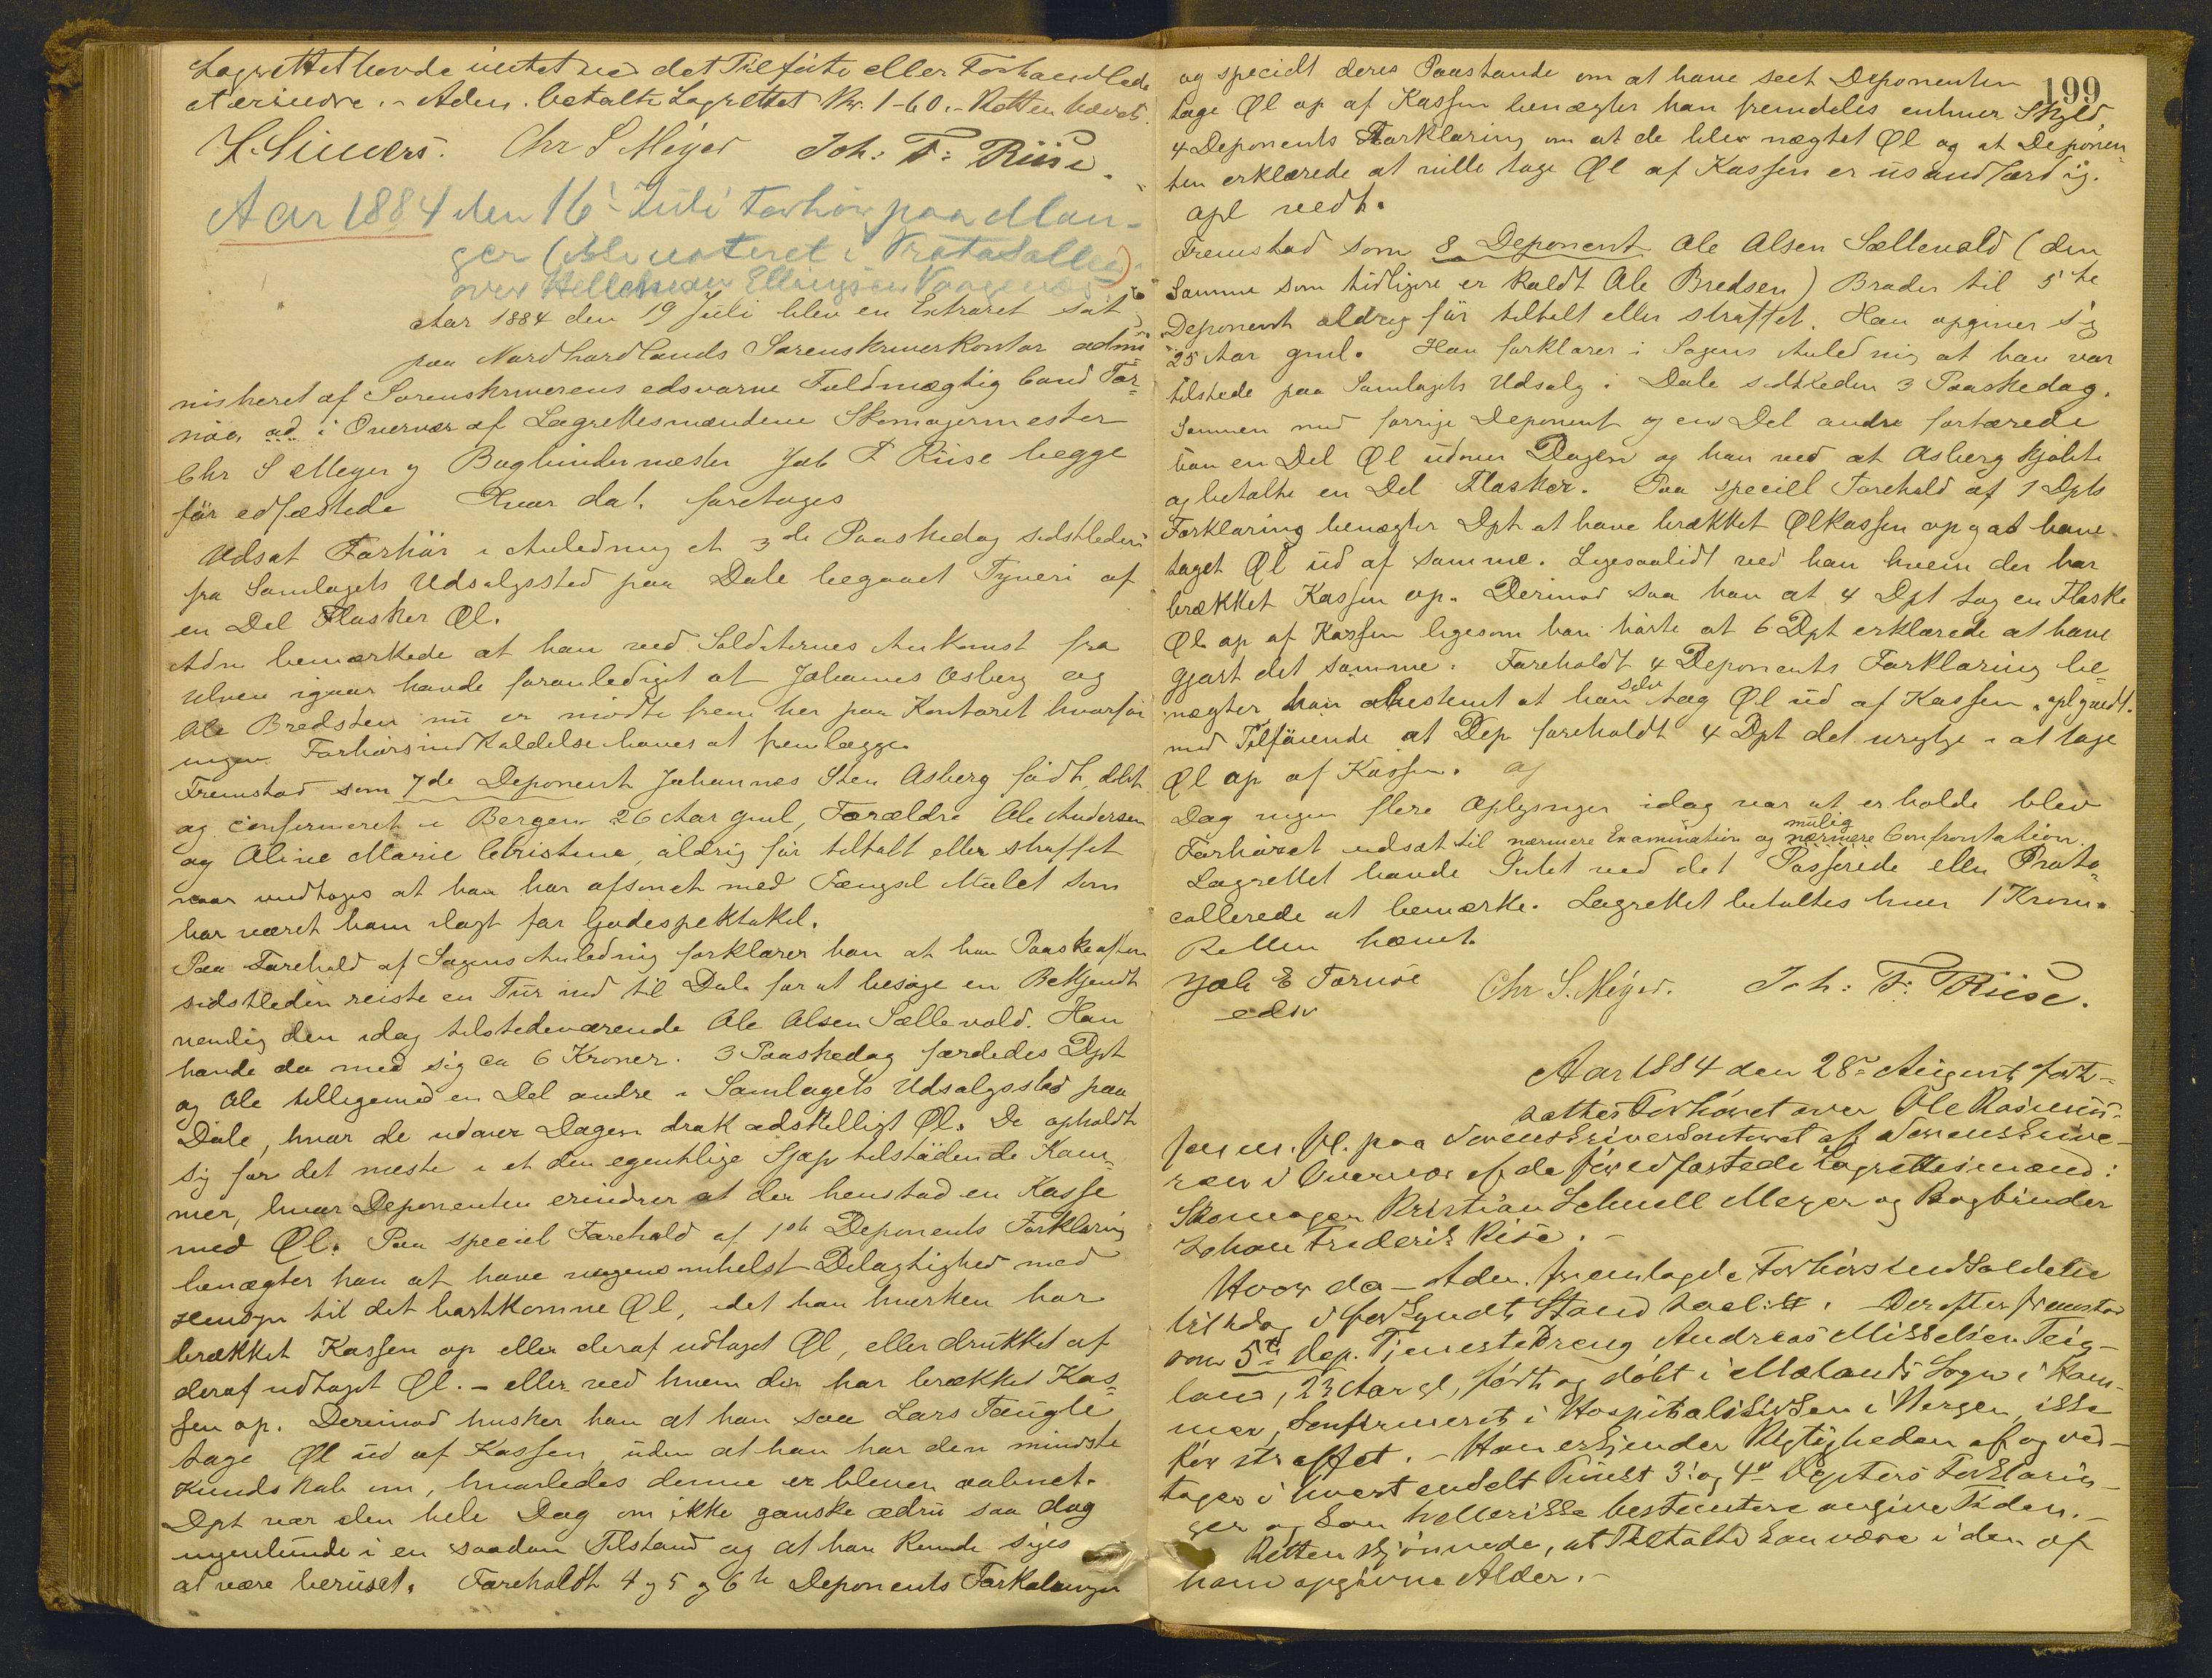 Lagrettet havde intet ved det Tilførte eller Forhandlede
at erindre. - Adm. betalte Lagrettet Kr. 1-60. - Retten hævet.
Chr S Meyer Joh: F: Riise.
Aar 1884 den 16' Juli Forhør paa Man-
ger (ikke noteret i Protokollen)
over Ellingsen
Aar 1884 den 19 Juli blev en Extraret sat
paa Nordhordlands Sorenskriverkontor admi
nistreret af Sorenskriverens edsvorne Fuldmægtig Cand Tor-
nøe, ad i Overvær af Lagrettesmændene Skomagermester
Chr S Meyer og Bogbindermester Joh F Riise begge
før edfæstede Hvor da! foretoges
Udsat Forhør i Anledning et 3de Paaskedag sidstleden
fra Samlagets Udsalgssted paa Dale begaaet Tyveri af
en Del Flasker Øl.
Adm bemærkede at han ved Soldaternes Ankomst fra
Ulven igaar havde foranlediget at Johannes Asberg og
Ole Bredsten nu er mødte frem her paa Kontoret hvorfor
ingen Forhørsindkaldelse haves at fremlægge.
Fremstod som 7de Deponent Johannes Sten Asberg født, døbt
og confirmeret i Bergen 26 Aar gml, Forældre Ole Andersen
og Oline Marie Christine, aldrig før tiltalt eller straffet
naar undtages at han har afsonet med Fængsel Mulct som
har været ham ilagt for Gadespektakel.
Paa Forehold af Sagens Anledning forklarer han at han Paaskeaften
sidstleden reiste en Tur ind til Dale for at besøge en Bekjendt
nemlig den idag tilstedeværende Ole Olsen Sællevold. Han
havde da med sig ca 6 Kroner. 3 Paaskedag færdedes Dpt
og Ole tilligemed en Del andre i Samlagets Udsalgssted paa
Dale, hvor de udover Dagen drak adskilligt Øl. De opholdt
sig for det meste i et den egentlige Sjap tilstødende Kam-
mer, hvor Deponenten erindrer at der henstod en Kasse
med Øl. Paa speciel Forehold af 1ste Deponents Forklaring
benægter han at have nogensomhelst Delagtighed med
Hensyn til det bortkomne Øl, idet han hverken har
brækket Kassen op eller deraf udtaget Øl, eller drukket af
deraf udtaget Øl. - eller ved hvem der har brækket Kas-
sen op. Derimod husker han at han saa Lars Taugle
tage Øl ud af Kassen uden at han har den mindste
Kundskab om, hvorledes denne er bleven aabnet.
Dpt var den hele Dag om ikke ganske ædru saa dog
ingenlunde i en saadan Tilstand og at han kunde siges
at være beruset. Foreholdt 4 og 5 og 6te Deponents Forklaringer
199
og specielt deres Paastande om at have seet Deponenten
tage Øl op af Kassen benægter han fremdeles enhver Skyld.
4 Deponents Forklaring om at de blev nægtet Øl og at Deponen-
ten erklærede at ville tage Øl af Kassen er usandfærdig.
Opl vedt.
Fremstod som 8 Deponent Ole Olsen Sællevold (den
Samme som tidligere er kaldt Ole Bredsen) Broder til 5te
Deponent aldrig før tiltalt eller straffet. Han opgiver sig
25 Aar gml. Han forklarer i Sagens Anledning at han var
tilstede paa Samlagets Udsalg i Dale sidstleden 3 Paaskedag.
Sammen med forrige Deponent og en Del andre fortærede
han en Del Øl udover Dagen og han ved at Asberg kjøbte
og betalte en Del Flasker. Paa speciel Forehold af 1 Dpts
Forklaring benægter Dpt at have brækket Ølkassen op og at have
taget Øl ud af samme. Ligesaalidt ved han hvem der har
brækket Kassen op. Derimod saa han at 4 Dpt tog en Flaske
Øl op af Kassen ligesom han hørte at 6 Dpt erklærede at have
gjort det samme. Foreholdt 4 Deponents Forklaring be-
nægter han bestemt at han selv tog Øl ud af Kassen. opl gvedt.
med Tilføiende at Dep foreholdt 4 Dpt det urigtige i at tage
Øl op af Kassen.
Da ingen flere Oplysninger idag var at erholde blev
Forhøret udsat til nærmere Examination og mulig nærmere Confrontation.
Lagrettet havde Intet ved det Passerede eller Proto-
collerede at bemærke. Lagrettet betaltes hver 1 Krone.
Retten hævet.
Joh E Tornøe Chr S. Meyer. Joh: F: Riise.
edsv
Aar 1884 den 28de August fort-
sattes Forhøret over Ole Rasmus-
sen m. fl. paa Sorenskriverkontoret af Sorenskrive-
ren i Overvær af de før edfæstede Lagrettesmænd:
Skomager Kristian Schnell Meyer og Bogbinder
Johan Frederik Rise. -
Hvor da - Adm. fremlagde Forhørsindkaldelse
til idag i forkyndt Stand . - Derefter fremstod
som 5te Dep. Tjenestedreng Andreas Mikkelsen Teig-
land, 23 Aar gl, født og døbt i Mælands Sogn i Ham-
mer, konfirmeret i Hospitalskirken i Bergen, ikke
før straffet. - Han erkjender Rigtigheden af og ved-
tager i hvert enkelt Punkt 3' og 4de Depters Forklarin-
ger og kan heller ikke bestemtere angive Tiden. -
Retten skjønnede, at Tiltalte kan være i den af
ham opgivne Alder. -